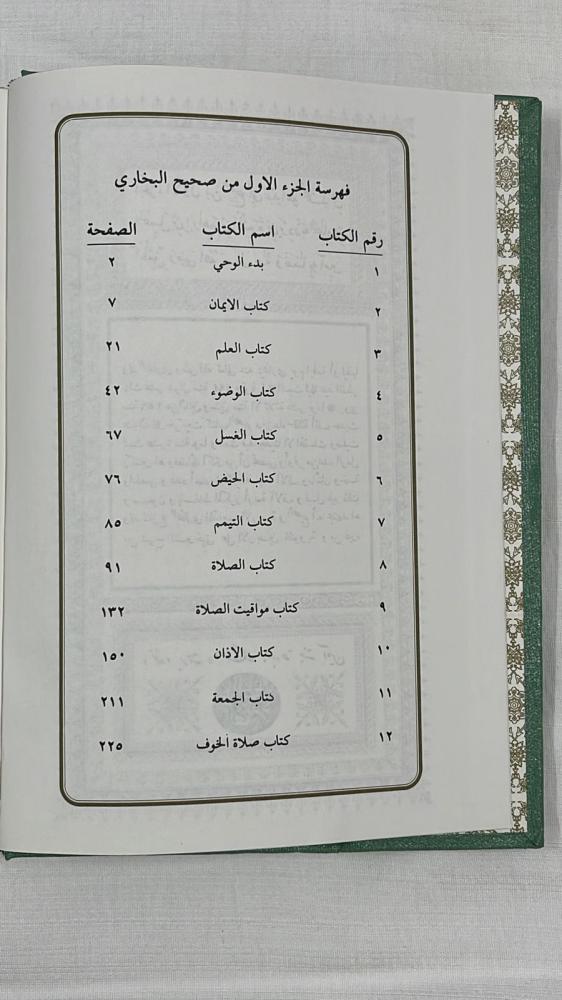 فهرسة الجزء الاول من صحيح البخاري
رقم الكتاب اسم الكتاب الصفحة
١ بدء الوحي ٢
٢ كتاب الايمان ٧
٣ كتاب العلم ٢١
٤ كتاب الوضوء ٤٢
٥ كتاب الغسل ٦٧
٦ كتاب الحيض ٧٦
٧ كتاب التيمم ٨٥
٨ كتاب الصلاة ٩١
٩ كتاب مواقيت الصلاة ١٣٢
١٠ كتاب الاذان ١٥٠
١١ كتاب الجمعة ٢١١
١٢ كتاب صلاة الخوف ٢٢٥